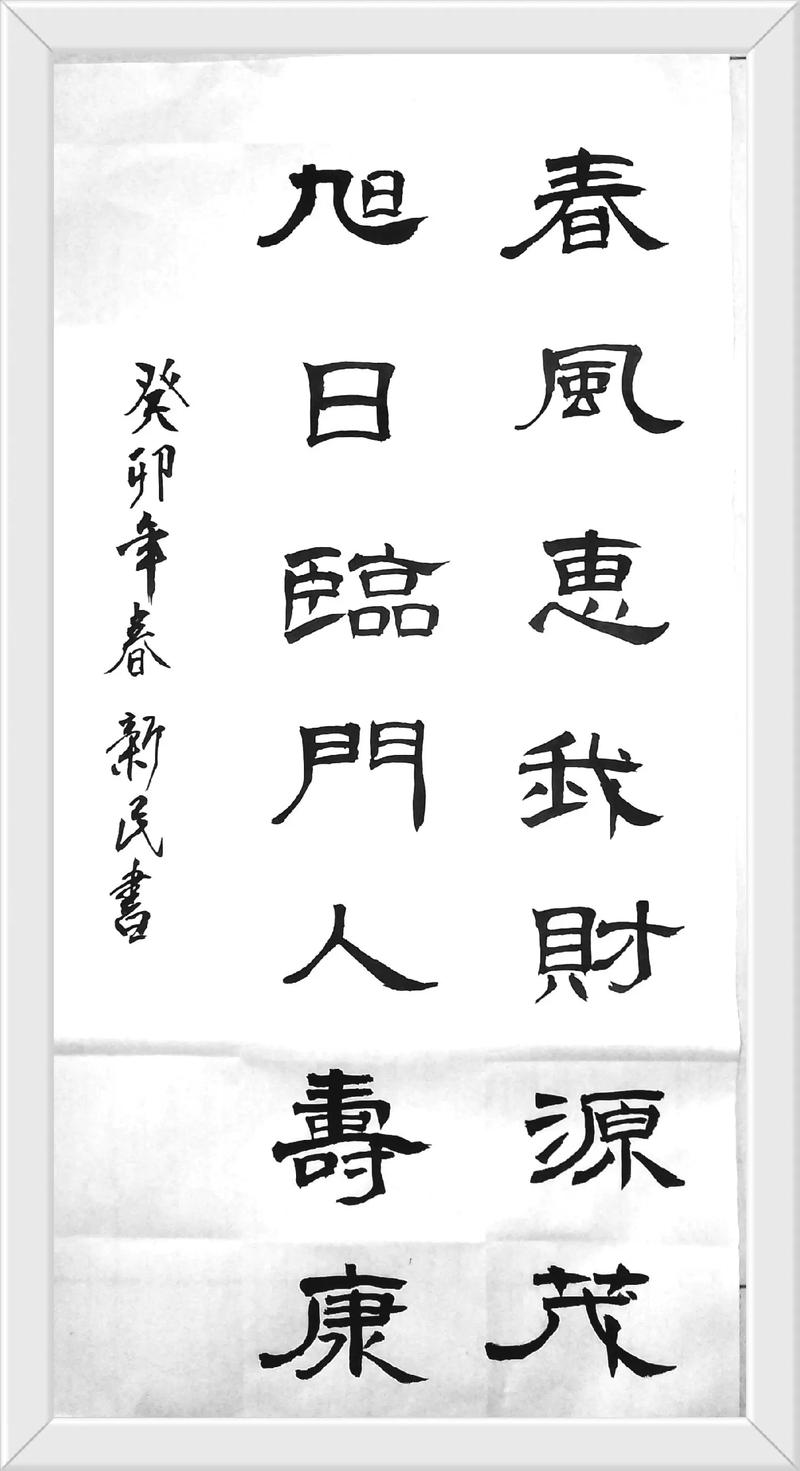 春風恵我財源茂
旭日臨門人壽康
癸卯年春 新民書